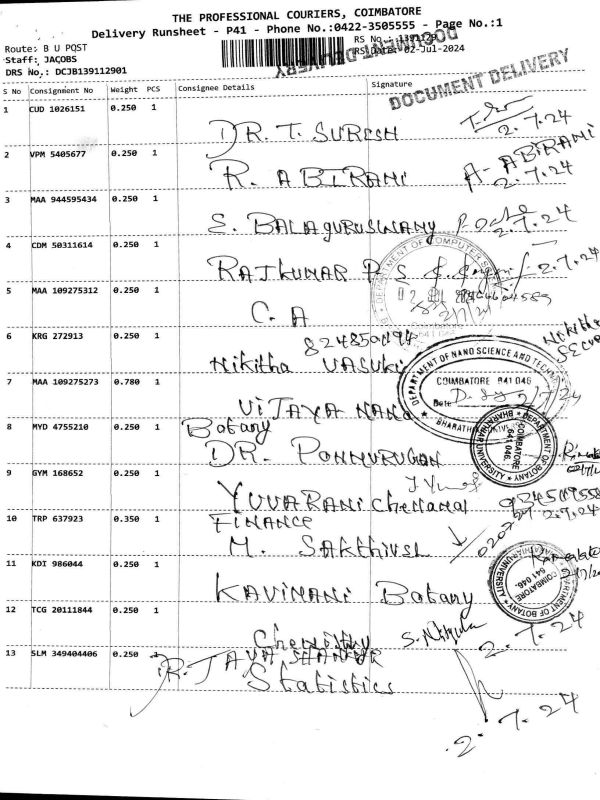 THE PROFESSIONAL COURIERS, COIMBATORE
Delivery Runsheet - P41 - Phone No.:0422-3505555 - Page No.:1
Route: B U POST
RS No.: 139112901
Staff: JACOBS
RS Date: 02-Jul-2024
DRS No.: DCJB139112901
DOCUMENT DELIVERY
DOCUMENT DELIVERY
S No Consignment No Weight PCS Consignee Details Signature
1 CUD 1026151 0.250 1
DR. T. SURESH 2.7.24
2 VPM 5405677 0.250 1
R. ABIRANI A-ABIRANI 2.7.24
3 MAA 944595434 0.250 1
S. BALAGURUSWAMY 2.7.24
4 CDM 50311614 0.250 1
RAJKUMAR P S 2.7.24
DEPARTMENT OF COMPUTER
5 MAA 109275312 0.250 1
C. A
6 KRG 272913 0.250 1
Nikitha VASUKI Nikitha
DEPARTMENT OF NANO SCIENCE AND
COIMBATORE 641 046
Date
7 MAA 109275273 0.780 1
VIJAYA NAND
8 MYD 4755210 0.250 1
Botany
DR. PONMURUGAN
DEPARTMENT OF BOTANY
BHARATHIAR UNIVERSITY
COIMBATORE
641 046.
9 GYM 168652 0.250 1
YUVARANI 2.7.24
10 TRP 637923 0.350 1
FINANCE
M. SAKTHIVEL
11 KDI 986044 0.250 1
KAVIMANI Botany
DEPARTMENT OF BOTANY
COIMBATORE
641 046.
12 TCG 20111844 0.250 1
Chemisthy 2.7.24
13 SLM 349404406 0.250 1
DR. JAYA SHANKAR
Statistics
2.7.24